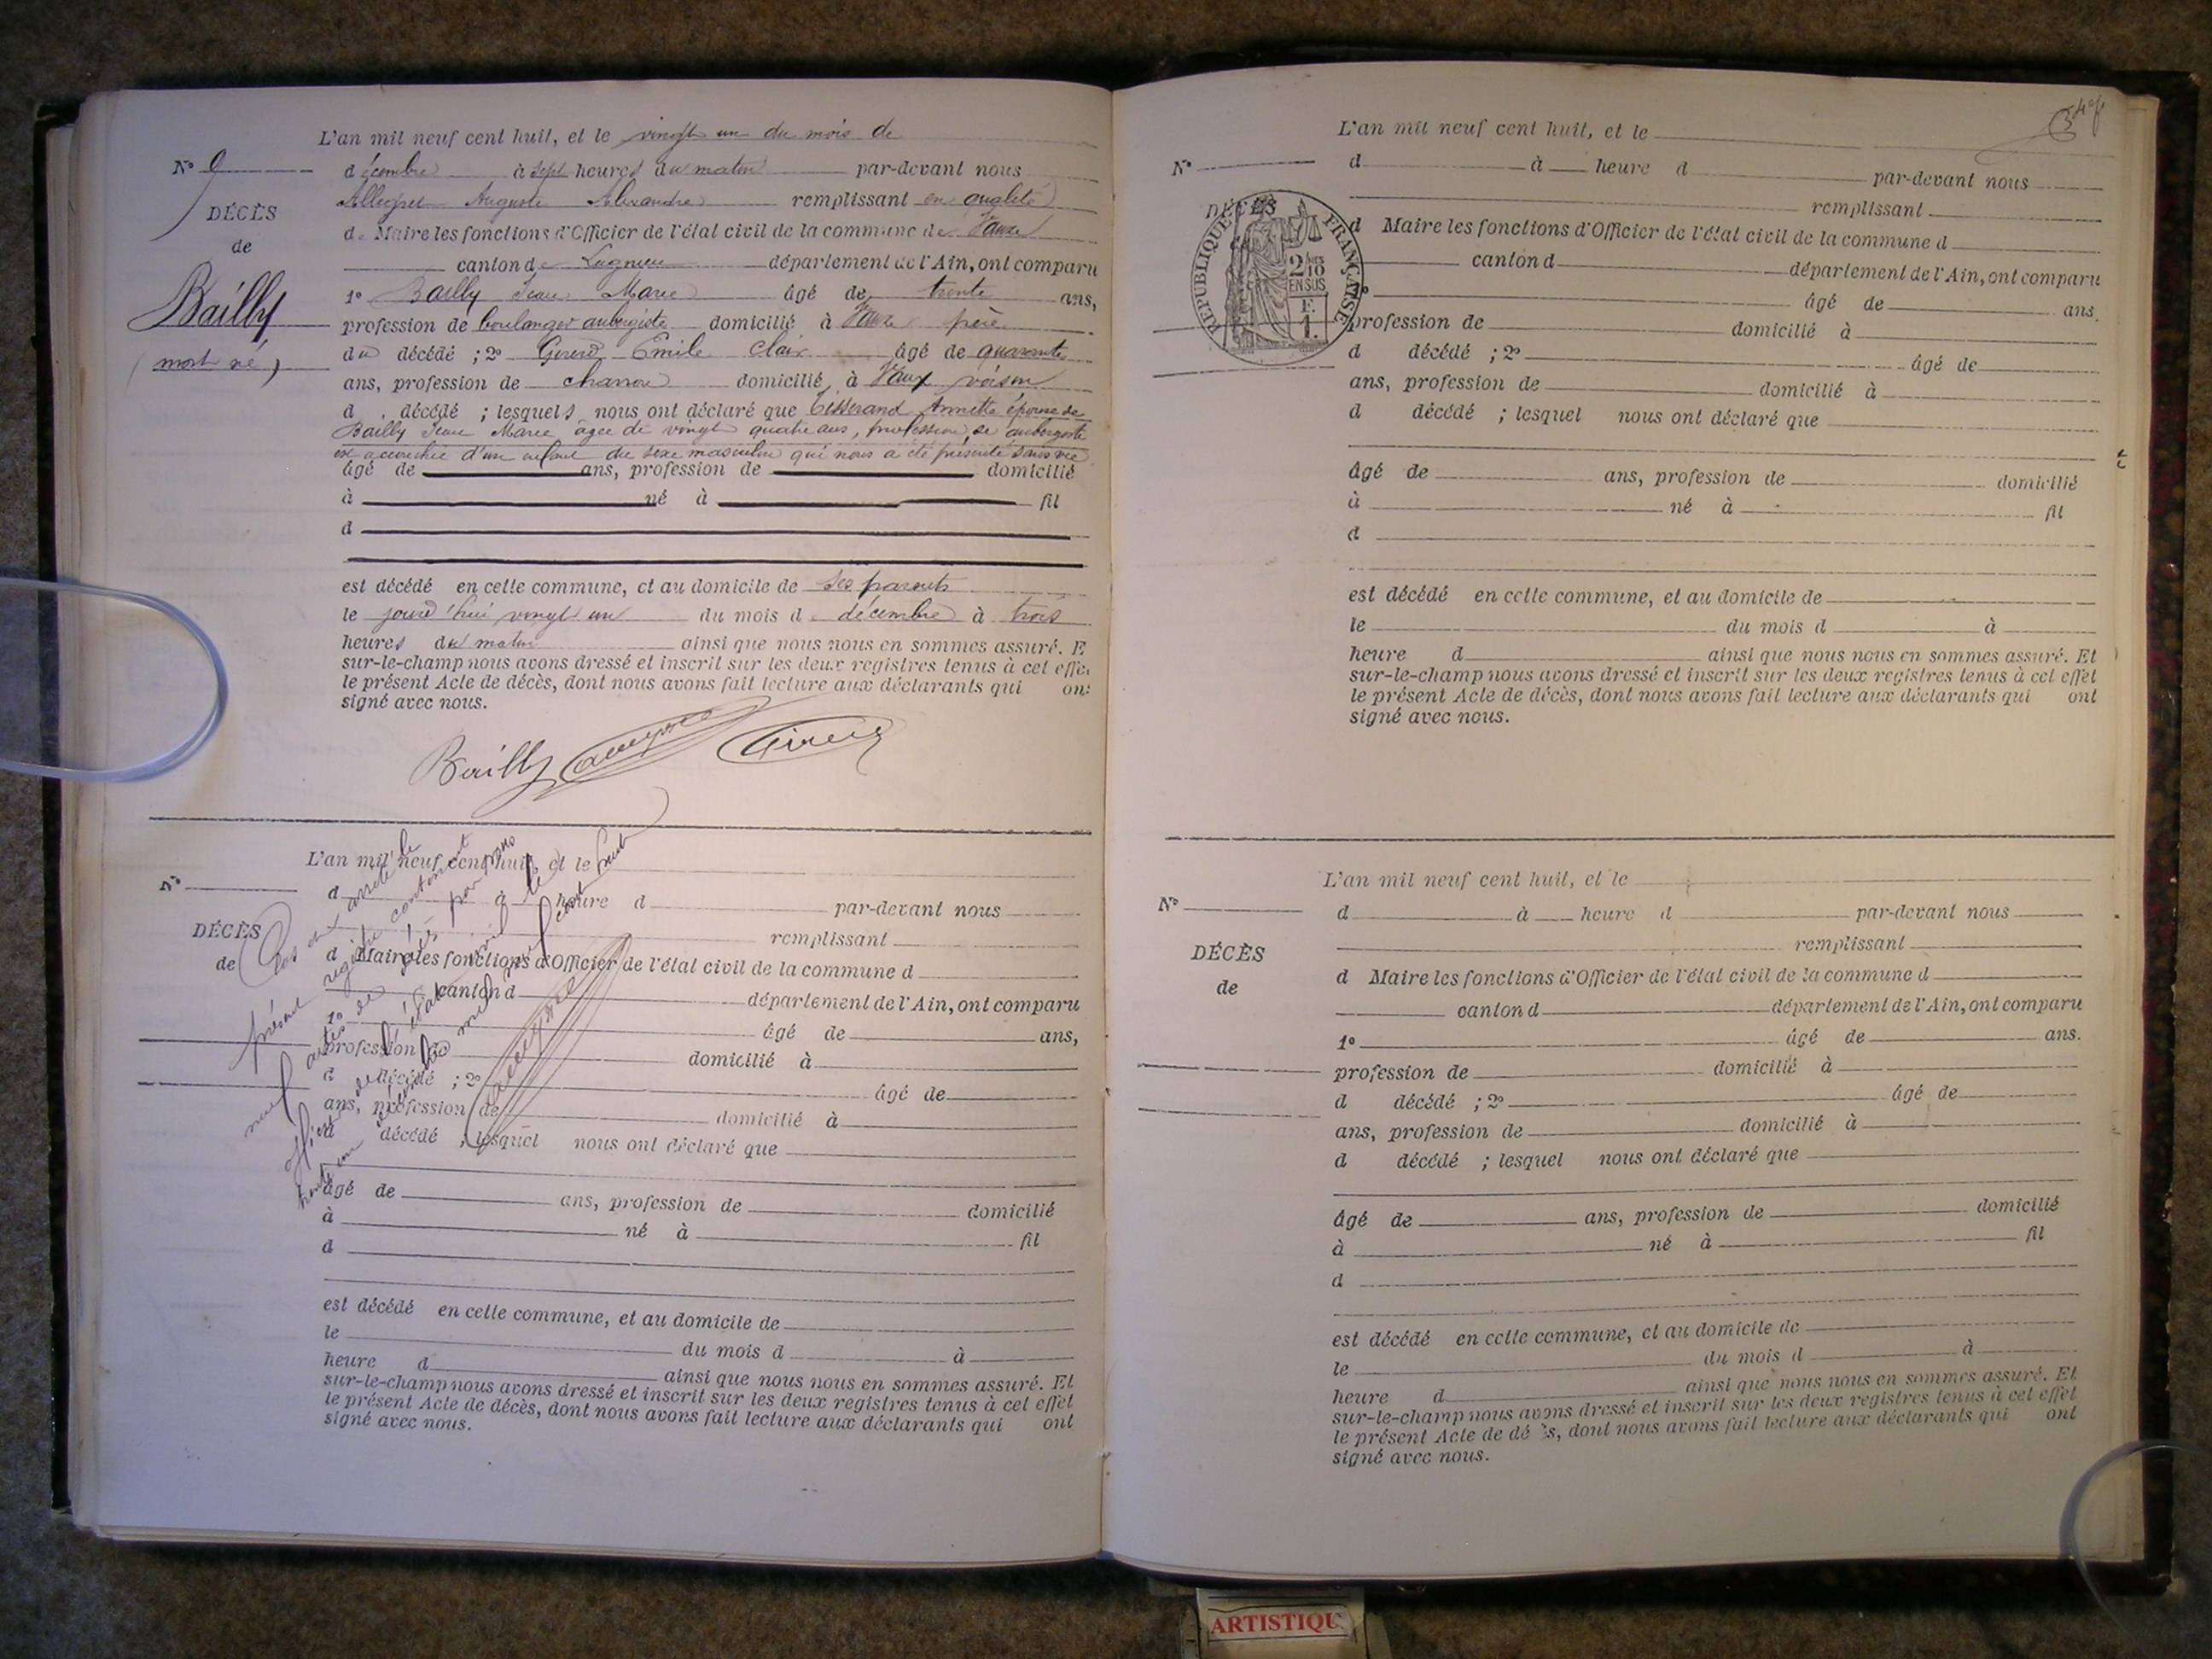 L'an mil neuf cent huit, et le vingt un du mois de
N° 9
décembre à sept heures du matin par-devant nous
DÉCÈS
Allegret Auguste Alexandre remplissant en qualité
de
de Maire les fonctions d'Officier de l'état civil de la commune de Vaux
canton de Lagnieu département de l'Ain, ont comparu
Bailly
1° Bailly Jean Marie âgé de trente ans,
profession de boulanger aubergiste domicilié à Vaux père
(mort né)
du décédé ; 2° Emile Clair âgé de quarante
ans, profession de charron domicilié à Vaux voisin
d décédé ; lesquels nous ont déclaré que Tisserand Annette épouse de
Bailly Jean Marie âgée de vingt quatre ans, profession de aubergiste
est accouchée d'un enfant du sexe masculin qui nous a été présenté sans vie
âgé de ans, profession de domicilié
à né à fil
d
est décédé en cette commune, et au domicile de ses parents
le jourd'hui vingt un du mois de décembre à trois
heures du matin ainsi que nous nous en sommes assuré. E
sur-le-champ nous avons dressé et inscrit sur les deux registres tenus à cet effe
le présent Acte de décès, dont nous avons fait lecture aux déclarants qui on
signé avec nous.
Bailly
L'an mil neuf cent huit, et le
N°
d à heure d par-devant nous
DÉCÈS
remplissant
de
d Maire les fonctions d'Officier de l'état civil de la commune d
canton d département de l'Ain, ont comparu
1° âgé de ans,
profession de domicilié à
d décédé ; 2° âgé de
ans, profession de domicilié à
d décédé ; lesquel nous ont déclaré que
âgé de ans, profession de domicilié
à né à fil
d
est décédé en cette commune, et au domicile de
le du mois d à
heure d ainsi que nous nous en sommes assuré. Et
sur-le-champ nous avons dressé et inscrit sur les deux registres tenus à cet effet
le présent Acte de décès, dont nous avons fait lecture aux déclarants qui ont
signé avec nous.
Clos et arrêté le
présent registre contenant
neuf actes de décès par nous
officier de l'état civil le
trente un décembre mil neuf cent huit
L'an mil neuf cent huit, et le
N°
d à heure d par-devant nous
DÉCÈS
remplissant
RÉPUBLIQUE FRANÇAISE
2 fcs
10
EN SUS
d Maire les fonctions d'Officier de l'état civil de la commune d
canton d département de l'Ain, ont comparu
1° âgé de ans.
profession de domicilié à
d décédé ; 2° âgé de
ans, profession de domicilié à
d décédé ; lesquel nous ont déclaré que
âgé de ans, profession de domicilié
à né à fil
d
est décédé en cette commune, et au domicile de
le du mois d à
heure d ainsi que nous nous en sommes assuré. Et
sur-le-champ nous avons dressé et inscrit sur les deux registres tenus à cet effet
le présent Acte de décès, dont nous avons fait lecture aux déclarants qui ont
signé avec nous.
L'an mil neuf cent huit, et le
N°
d à heure d par-devant nous
DÉCÈS
remplissant
de
d Maire les fonctions d'Officier de l'état civil de la commune d
canton d département de l'Ain, ont comparu
1° âgé de ans.
profession de domicilié à
d décédé ; 2° âgé de
ans, profession de domicilié à
d décédé ; lesquel nous ont déclaré que
âgé de ans, profession de domicilié
à né à fil
d
est décédé en cette commune, et au domicile de
le du mois d à
heure d ainsi que nous nous en sommes assuré. Et
sur-le-champ nous avons dressé et inscrit sur les deux registres tenus à cet effet
le présent Acte de dé ès, dont nous avons fait lecture aux déclarants qui ont
signé avec nous.
ARTISTIQU